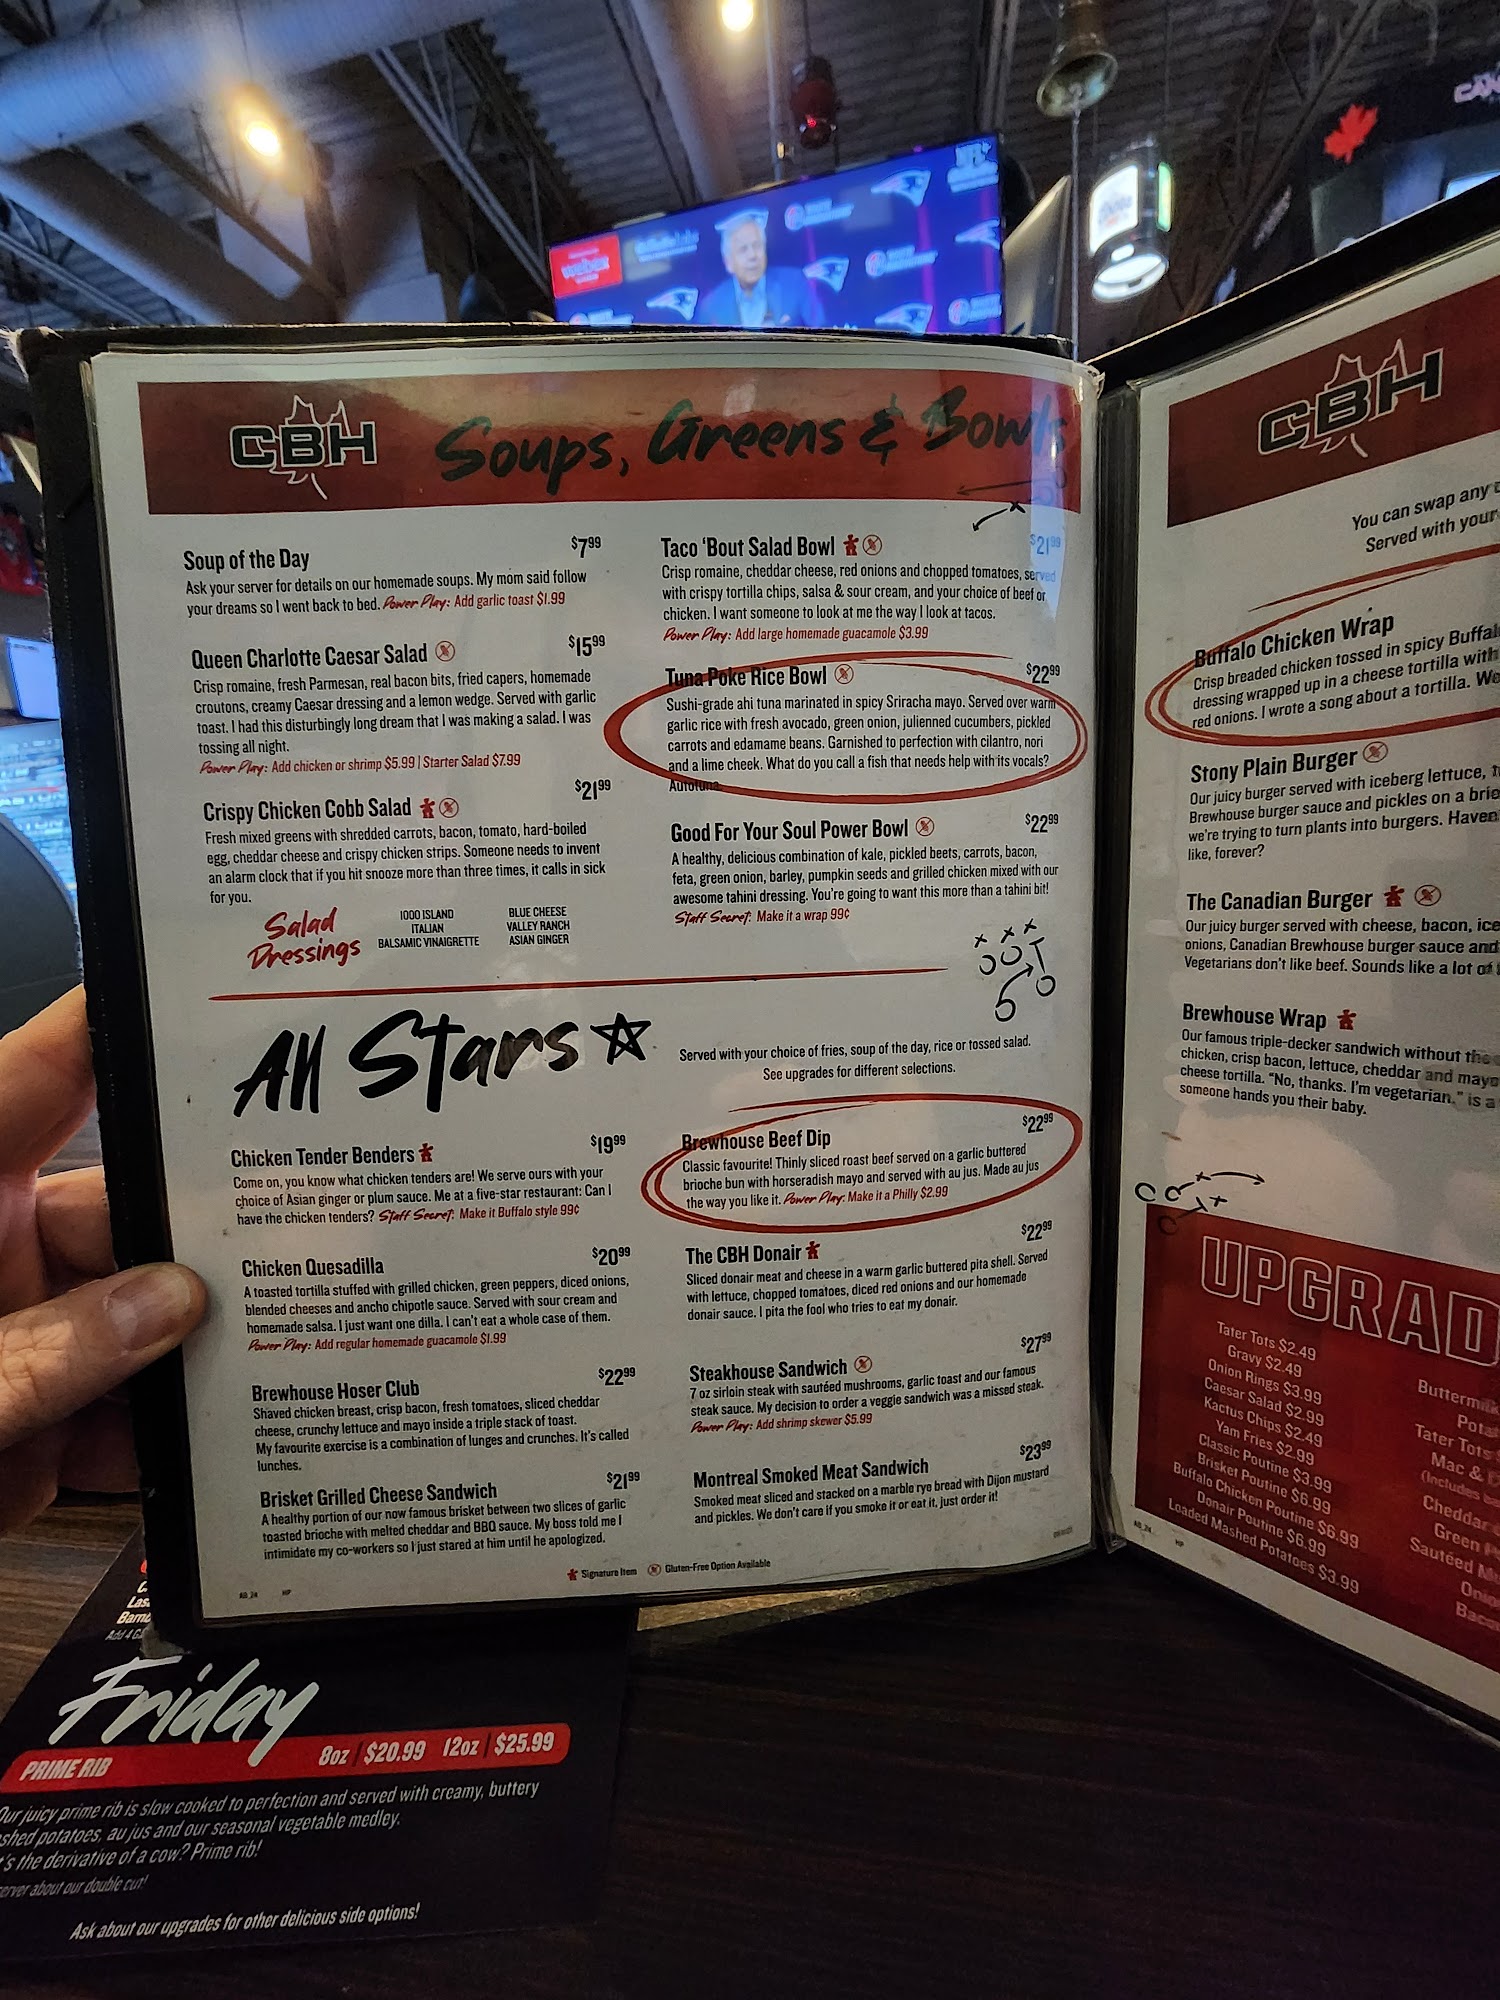 webex
CBH
Soups, Greens & Bowls
Soup of the Day
$7.99
Ask your server for details on our homemade soups. My mom said follow
your dreams so I went back to bed. Power Play: Add garlic toast $1.99
Queen Charlotte Caesar Salad
$15.99
Crisp romaine, fresh Parmesan, real bacon bits, fried capers, homemade
croutons, creamy Caesar dressing and a lemon wedge. Served with garlic
toast. I had this disturbingly long dream that I was making a salad. I was
tossing all night.
Power Play: Add chicken or shrimp $5.99 | Starter Salad $7.99
Crispy Chicken Cobb Salad
$21.99
Fresh mixed greens with shredded carrots, bacon, tomato, hard-boiled
egg, cheddar cheese and crispy chicken strips. Someone needs to invent
an alarm clock that if you hit snooze more than three times, it calls in sick
for you.
Salad
Dressings
1000 ISLAND
ITALIAN
BALSAMIC VINAIGRETTE
BLUE CHEESE
VALLEY RANCH
ASIAN GINGER
Taco 'Bout Salad Bowl
$21.99
Crisp romaine, cheddar cheese, red onions and chopped tomatoes, served
with crispy tortilla chips, salsa & sour cream, and your choice of beef or
chicken. I want someone to look at me the way I look at tacos.
Power Play: Add large homemade guacamole $3.99
Tuna Poke Rice Bowl
$22.99
Sushi-grade ahi tuna marinated in spicy Sriracha mayo. Served over warm
garlic rice with fresh avocado, green onion, julienned cucumbers, pickled
carrots and edamame beans. Garnished to perfection with cilantro, nori
and a lime cheek. What do you call a fish that needs help with its vocals?
Autotuna
Good For Your Soul Power Bowl
$22.99
A healthy, delicious combination of kale, pickled beets, carrots, bacon,
feta, green onion, barley, pumpkin seeds and grilled chicken mixed with our
awesome tahini dressing. You're going to want this more than a tahini bit!
Staff Secret: Make it a wrap 99¢
All Stars
Served with your choice of fries, soup of the day, rice or tossed salad.
See upgrades for different selections.
Chicken Tender Benders
$19.99
Come on, you know what chicken tenders are! We serve ours with your
choice of Asian ginger or plum sauce. Me at a five-star restaurant: Can I
have the chicken tenders? Staff Secret: Make it Buffalo style 99¢
Chicken Quesadilla
$20.99
A toasted tortilla stuffed with grilled chicken, green peppers, diced onions,
blended cheeses and ancho chipotle sauce. Served with sour cream and
homemade salsa. I just want one dilla. I can't eat a whole case of them.
Power Play: Add regular homemade guacamole $1.99
Brewhouse Hoser Club
$22.99
Shaved chicken breast, crisp bacon, fresh tomatoes, sliced cheddar
cheese, crunchy lettuce and mayo inside a triple stack of toast.
My favourite exercise is a combination of lunges and crunches. It's called
lunches.
Brisket Grilled Cheese Sandwich
$21.99
A healthy portion of our now famous brisket between two slices of garlic
toasted brioche with melted cheddar and BBQ sauce. My boss told me I
intimidate my co-workers so I just stared at him until he apologized.
Brewhouse Beef Dip
$22.99
Classic favourite! Thinly sliced roast beef served on a garlic buttered
brioche bun with horseradish mayo and served with au jus. Made au jus
the way you like it. Power Play: Make it a Philly $2.99
The CBH Donair
$22.99
Sliced donair meat and cheese in a warm garlic buttered pita shell. Served
with lettuce, chopped tomatoes, diced red onions and our homemade
donair sauce. I pita the fool who tries to eat my donair.
Steakhouse Sandwich
$27.99
7 oz sirloin steak with sautéed mushrooms, garlic toast and our famous
steak sauce. My decision to order a veggie sandwich was a missed steak.
Power Play: Add shrimp skewer $5.99
Montreal Smoked Meat Sandwich
$23.99
Smoked meat sliced and stacked on a marble rye bread with Dijon mustard
and pickles. We don't care if you smoke it or eat it, just order it!
Signature Item Gluten-Free Option Available
AB_24 HP
CBH
You can swap any
Served with your
Buffalo Chicken Wrap
Crisp breaded chicken tossed in spicy Buffal
dressing wrapped up in a cheese tortilla with
red onions. I wrote a song about a tortilla. We
Stony Plain Burger
Our juicy burger served with iceberg lettuce,
Brewhouse burger sauce and pickles on a brio
we're trying to turn plants into burgers. Haven
like, forever?
The Canadian Burger
Our juicy burger served with cheese, bacon, ice
onions, Canadian Brewhouse burger sauce and
Vegetarians don't like beef. Sounds like a lot of
Brewhouse Wrap
Our famous triple-decker sandwich without the
chicken, crisp bacon, lettuce, cheddar and mayo
cheese tortilla. "No, thanks. I'm vegetarian." is a
someone hands you their baby.
UPGRAD
Tater Tots $2.49
Gravy $2.49
Onion Rings $3.99
Caesar Salad $2.99
Kactus Chips $2.49
Yam Fries $2.99
Classic Poutine $3.99
Brisket Poutine $6.99
Buffalo Chicken Poutine $6.99
Donair Poutine $6.99
Loaded Mashed Potatoes $3.99
Buttermilk
Pota
Tater Tots
Mac &
(Includes
Cheddar
Green
Sautéed M
Onio
Baco
AB_24 HP
Friday
PRIME RIB 8oz | $20.99 12oz | $25.99
Our juicy prime rib is slow cooked to perfection and served with creamy, buttery
shed potatoes, au jus and our seasonal vegetable medley.
t's the derivative of a cow? Prime rib!
erver about our double cut!
Ask about our upgrades for other delicious side options!